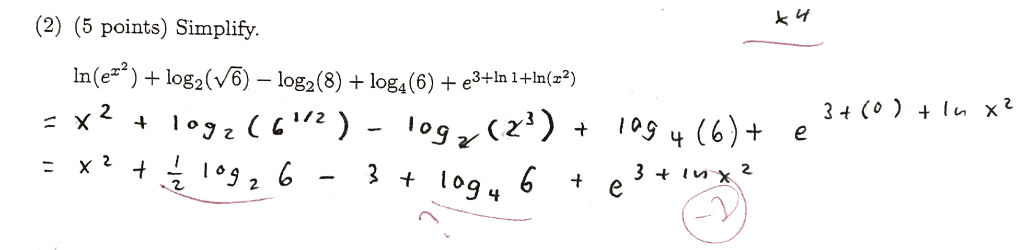 (2) (5 points) Simplify.
x 4
ln(e^{x^2}) + log_2(√6) − log_2(8) + log_4(6) + e^{3+ln 1+ln(x^2)}
= x^2 + log_2(6^{1/2}) − log_2(2^3) + log_4(6) + e^{3+(0)+ln x^2}
= x^2 + 1/2 log_2 6 − 3 + log_4 6 + e^{3+ln x^2}
? −2